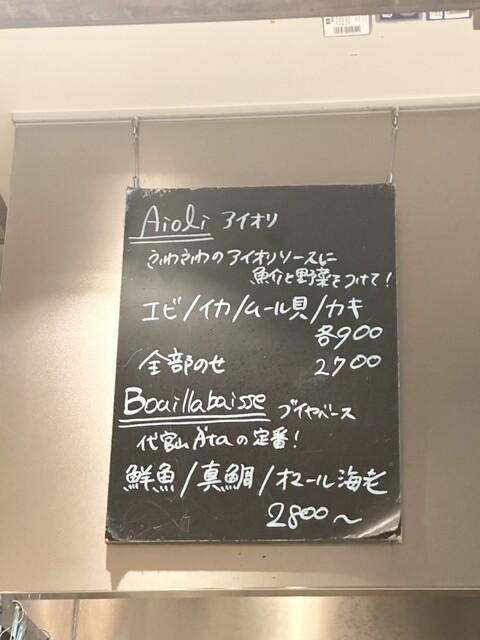 Aioli アイオリ
さわさわのアイオリソースに
魚介と野菜をつけて!
エビ/イカ/ムール貝/カキ
各900
全部のせ 2700
Bouillabaisse ブイヤベース
代官山 Ataの定番!
鮮魚/真鯛/オマール海老
2800〜